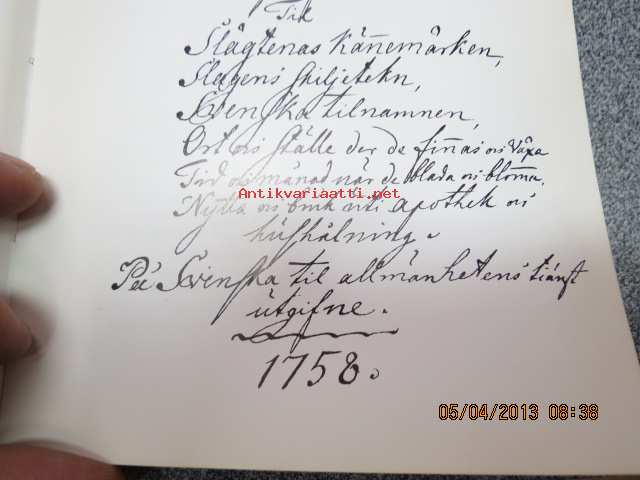 Tik
Slägtenas Känemärken,
Slagens skiljetekn,
Svenska tilnamnen,
Ort och ställe der de finas och växa
Tid och månad när de blada och bloma,
Antikvariaatti.net
Nytta och bruk uti apothek och
hushålning.
På Svenska til allmänhetens tiänst
utgifne.
1758.
05/04/2013 08:38